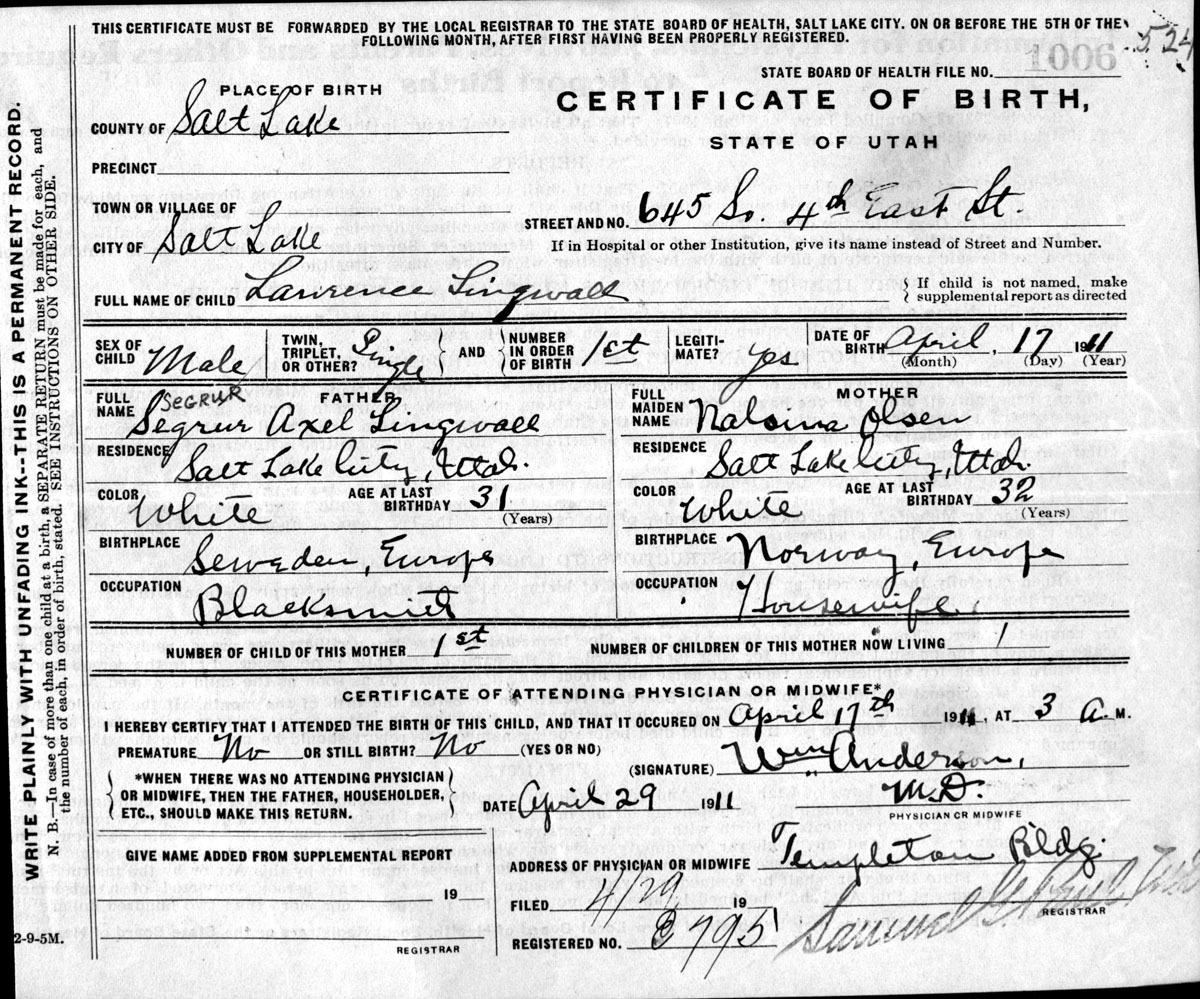 THIS CERTIFICATE MUST BE FORWARDED BY THE LOCAL REGISTRAR TO THE STATE BOARD OF HEALTH, SALT LAKE CITY. ON OR BEFORE THE 5TH OF THE
FOLLOWING MONTH, AFTER FIRST HAVING BEEN PROPERLY REGISTERED.
524
STATE BOARD OF HEALTH FILE NO.
PLACE OF BIRTH
CERTIFICATE OF BIRTH,
COUNTY OF Salt Lake
STATE OF UTAH
PRECINCT
TOWN OR VILLAGE OF
STREET AND NO. 645 So. 4th East St.
CITY OF Salt Lake
If in Hospital or other Institution, give its name instead of Street and Number.
FULL NAME OF CHILD Lawrence Lingwall
If child is not named, make
supplemental report as directed
SEX OF CHILD Male
TWIN, TRIPLET, OR OTHER? Single
AND
NUMBER IN ORDER OF BIRTH 1st
LEGITIMATE? Yes
DATE OF BIRTH April, 17 1911
(Month) (Day) (Year)
FATHER
SEGRUR
FULL NAME Segrur Axel Lingwall
RESIDENCE Salt Lake City, Utah.
COLOR White AGE AT LAST BIRTHDAY 31
(Years)
BIRTHPLACE Seweden, Europe
OCCUPATION Blacksmith
MOTHER
FULL MAIDEN NAME Nalsina Olsen
RESIDENCE Salt Lake City, Utah.
COLOR White AGE AT LAST BIRTHDAY 32
(Years)
BIRTHPLACE Norway, Europe
OCCUPATION Housewife
NUMBER OF CHILD OF THIS MOTHER 1st NUMBER OF CHILDREN OF THIS MOTHER NOW LIVING 1
CERTIFICATE OF ATTENDING PHYSICIAN OR MIDWIFE*
I HEREBY CERTIFY THAT I ATTENDED THE BIRTH OF THIS CHILD, AND THAT IT OCCURED ON April 17th 1911, AT 3 A. M.
PREMATURE No OR STILL BIRTH? No (YES OR NO)
(SIGNATURE) Wm. Anderson,
M.D.
PHYSICIAN OR MIDWIFE
*WHEN THERE WAS NO ATTENDING PHYSICIAN
OR MIDWIFE, THEN THE FATHER, HOUSEHOLDER,
ETC., SHOULD MAKE THIS RETURN.
DATE April 29 1911
GIVE NAME ADDED FROM SUPPLEMENTAL REPORT
19
REGISTRAR
ADDRESS OF PHYSICIAN OR MIDWIFE Templeton Bldg.
FILED 4/29 19
Samuel G.
REGISTRAR
REGISTERED NO. 795
2-9-5M.
WRITE PLAINLY WITH UNFADING INK--THIS IS A PERMANENT RECORD.
N. B.—In case of more than one child at a birth, a SEPARATE RETURN must be made for each, and
the number of each, in order of birth, stated. SEE INSTRUCTIONS ON OTHER SIDE.